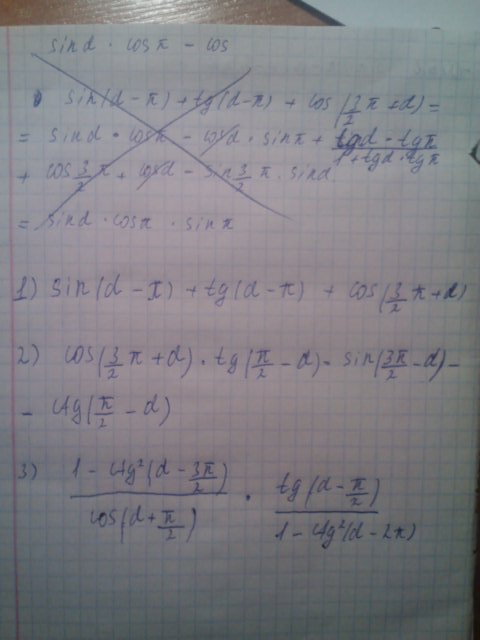 sind · cosπ - cos
sin(d - π) + tg(d - π) + cos(3/2 π + d) =
= sind · cosπ - cosd · sinπ + (tgd - tgπ)/(1 + tgd · tgπ)
+ cos 3/2 π + cosd - sin 3/2 π · sind
= sind · cosπ · sinπ
1) sin(d - π) + tg(d - π) + cos(3/2 π + d)
2) cos(3/2 π + d) · tg(π/2 - d) - sin(3π/2 - d) -
- ctg(π/2 - d)
3) (1 - ctg²(d - 3π/2))/(cos(d + π/2)) · (tg(d - π/2))/(1 - ctg²(d - 2π))